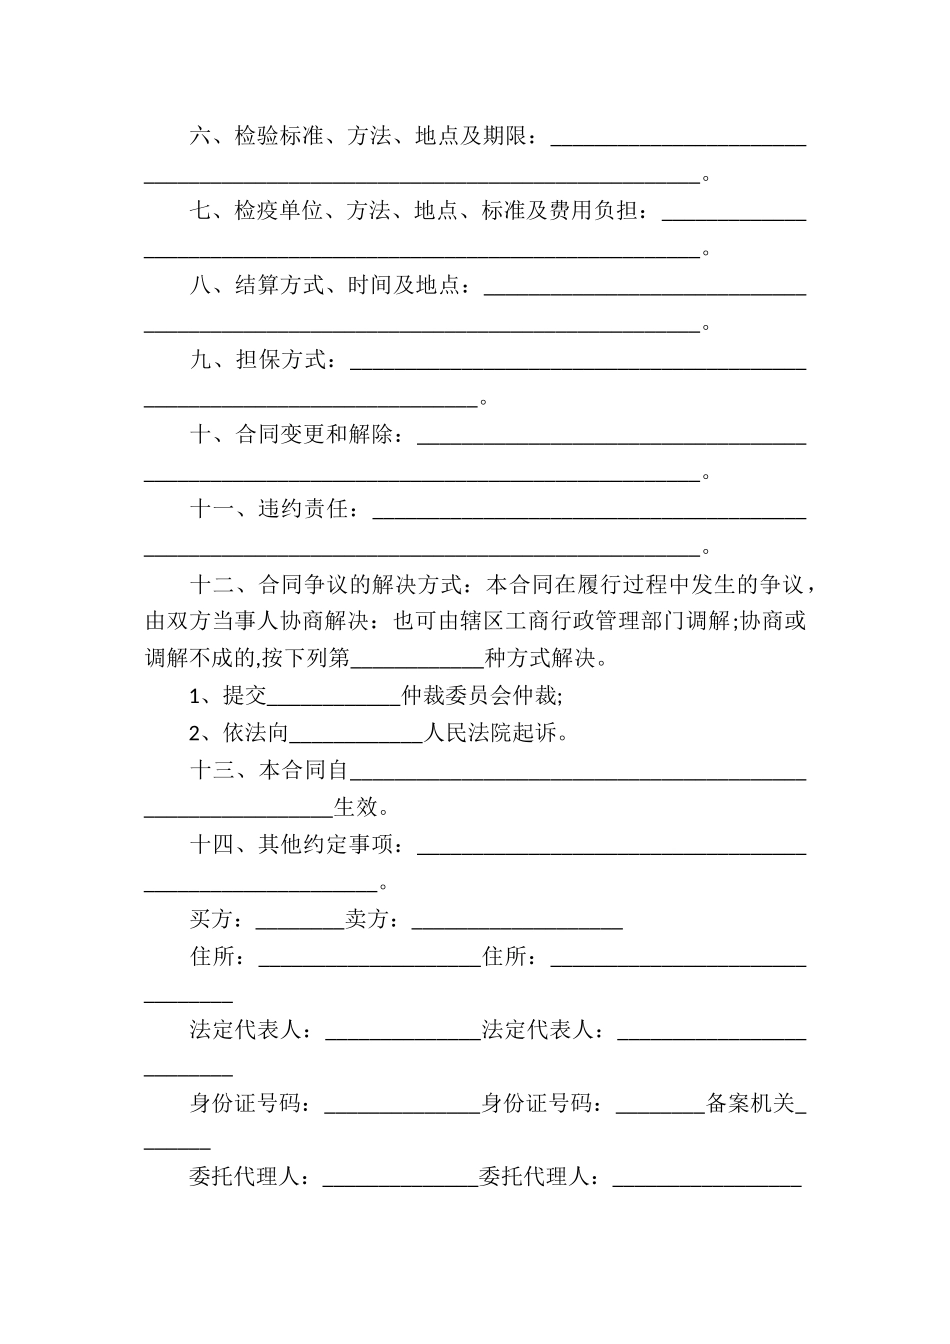 六、检验标准、方法、地点及期限：_______________________
__________________________________________________。
七、检疫单位、方法、地点、标准及费用负担：_____________
__________________________________________________。
八、结算方式、时间及地点：_____________________________
__________________________________________________。
九、担保方式：_________________________________________
______________________________。
十、合同变更和解除：___________________________________
__________________________________________________。
十一、违约责任：_______________________________________
__________________________________________________。
十二、合同争议的解决方式：本合同在履行过程中发生的争议，
由双方当事人协商解决：也可由辖区工商行政管理部门调解;协商或
调解不成的,按下列第____________种方式解决。
1、提交____________仲裁委员会仲裁;
2、依法向____________人民法院起诉。
十三、本合同自_________________________________________
_________________生效。
十四、其他约定事项：___________________________________
_____________________。
买方：________卖方：___________________
住所：____________________住所：_______________________
________
法定代表人：______________法定代表人：_________________
________
身份证号码：______________身份证号码：________备案机关_
______
委托代理人：______________委托代理人：_________________